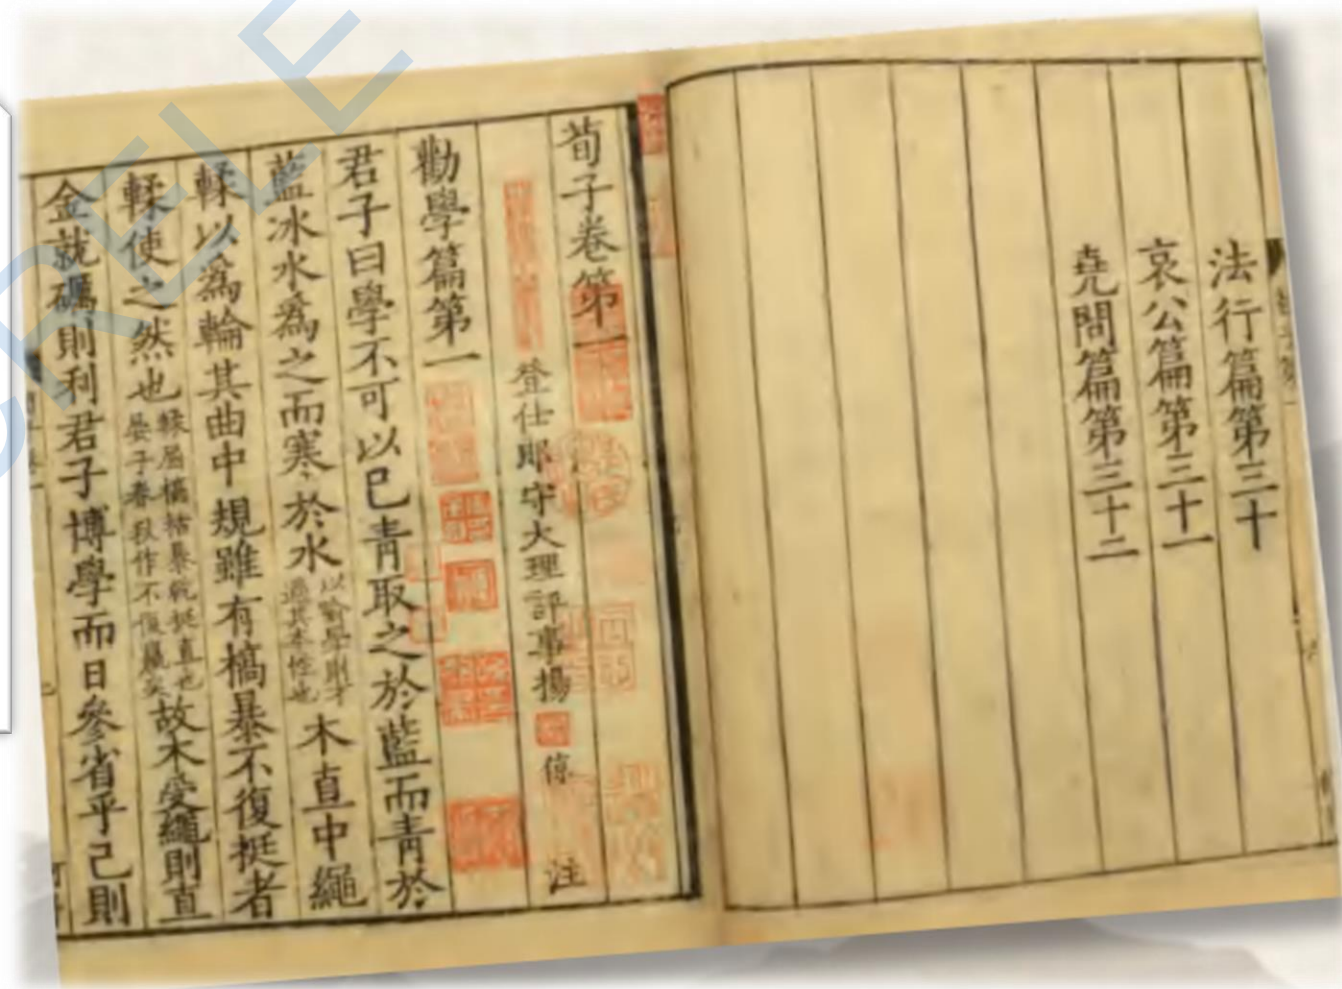 法行篇第三十
哀公篇第三十一
堯問篇第三十二
荀子卷第一
登仕郎守大理評事揚倞注
勸學篇第一
君子曰學不可以已青取之於藍而青於
藍冰水爲之而寒於水以喻學則才過其本性也木直中繩
輮以爲輪其曲中規雖有槁暴不復挺者
輮使之然也輮屈槁枯暴乾挺直也晏子春秋作不復贏矣故木受繩則直
金就礪則利君子博學而日參省乎己則